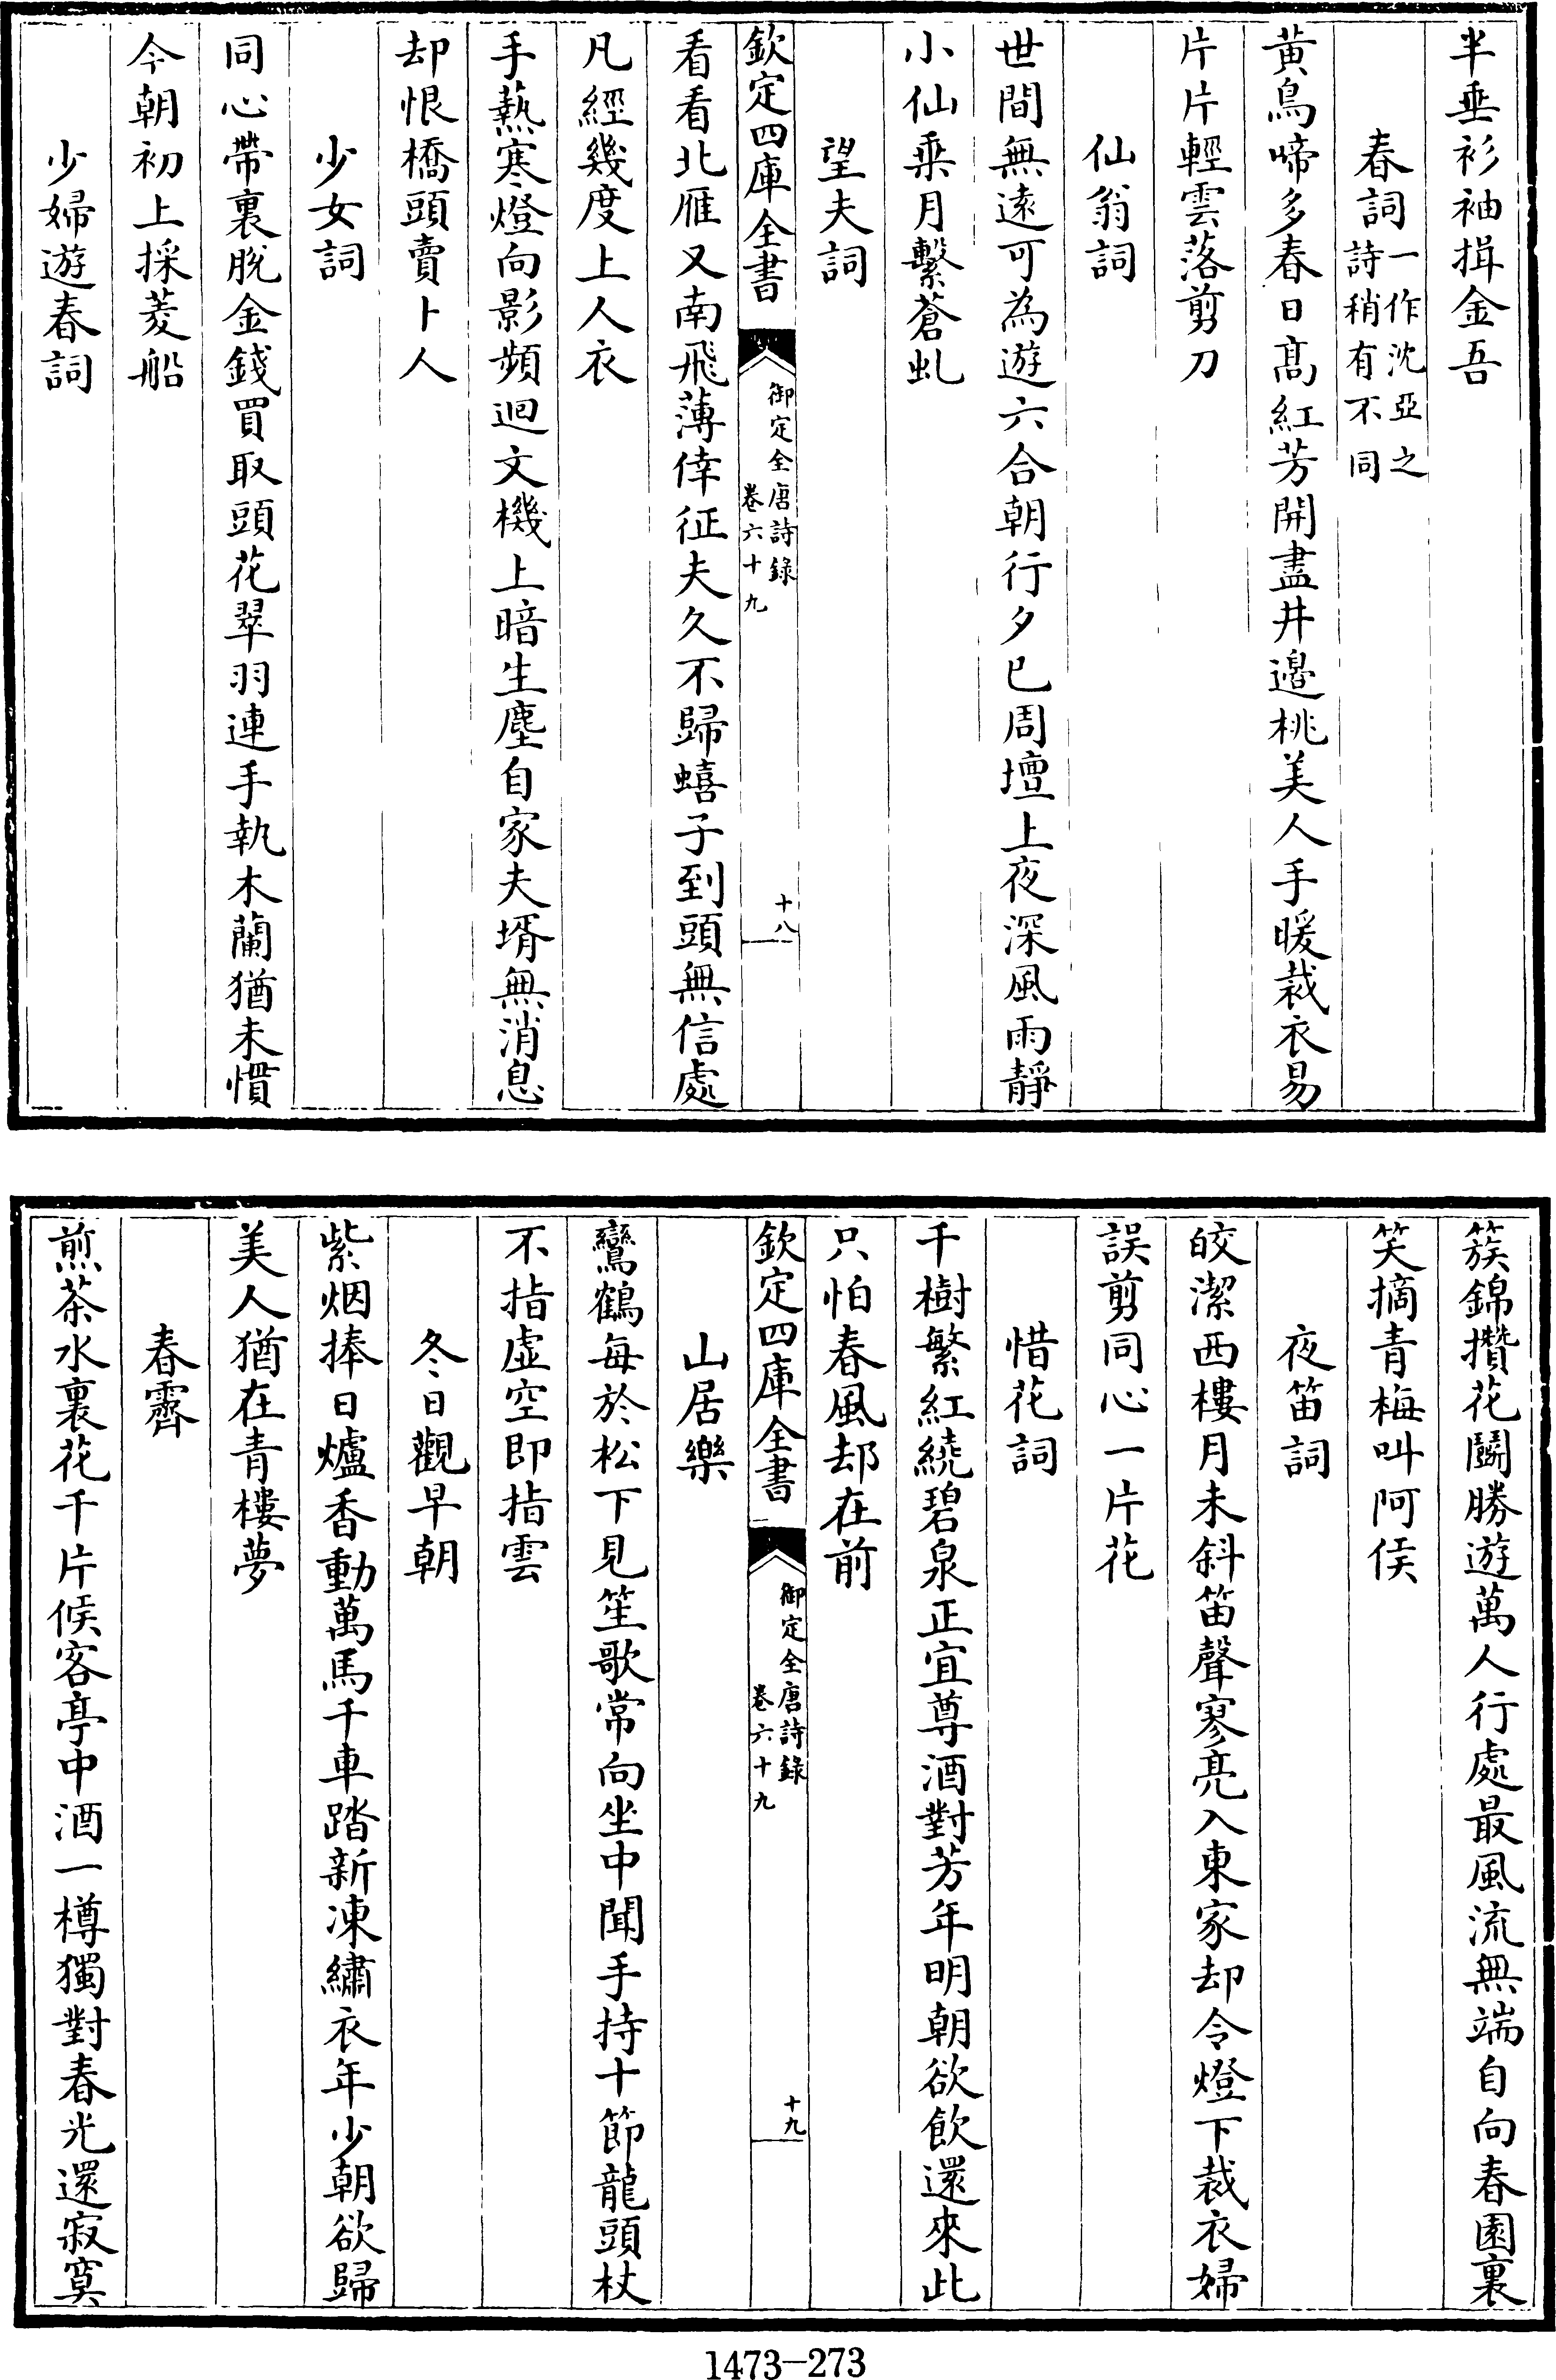 半垂衫袖揖金吾
春詞一作沈亞之
詩稍有不同
黃鳥啼多春日髙紅芳開盡井邉桃美人手暖裁衣易
片片輕雲落剪刀
仙翁詞
世間無逺可為遊六合朝行夕已周壇上夜深風雨靜
小仙乘月繫蒼虬
望夫詞
欽定四庫全書
御定全唐詩錄
卷六十九
十八
看看北雁又南飛薄倖征夫久不歸蟢子到頭無信處
凡經幾度上人衣
手爇寒燈向影頻迴文機上暗生塵自家夫壻無消息
却恨橋頭賣卜人
少女詞
同心帶裏脫金錢買取頭花翠羽連手執木蘭猶未慣
今朝初上採菱船
少婦遊春詞
簇錦攢花鬬勝遊萬人行處最風流無端自向春園裏
笑摘青梅叫阿侯
夜笛詞
皎潔西樓月未斜笛聲寥亮入東家却令燈下裁衣婦
誤剪同心一片花
惜花詞
千樹繁紅繞碧泉正宜尊酒對芳年明朝欲飲還來此
只怕春風却在前
欽定四庫全書
御定全唐詩錄
卷六十九
十九
山居樂
鸞鶴每於松下見笙歌常向坐中聞手持十節龍頭杖
不指虛空即指雲
冬日觀早朝
紫烟捧日爐香動萬馬千車踏新凍繡衣年少朝欲歸
美人猶在青樓夢
春霽
煎茶水裏花千片候客亭中酒一樽獨對春光還寂寞
1473-273